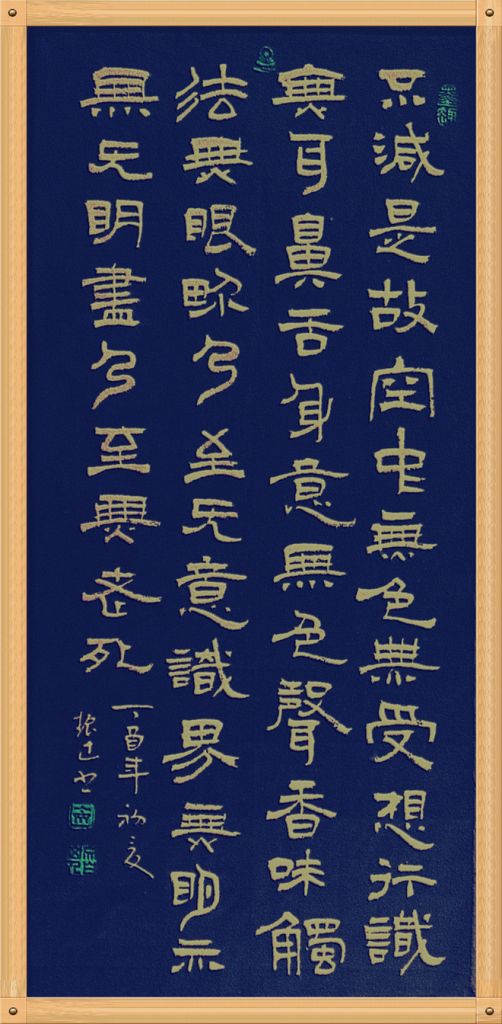 不減是故空中無色無受想行識
無耳鼻舌身意無色聲香味觸
法無眼畍乃至无意識界無明亦
無无明盡乃至無老死
丁酉年初夏